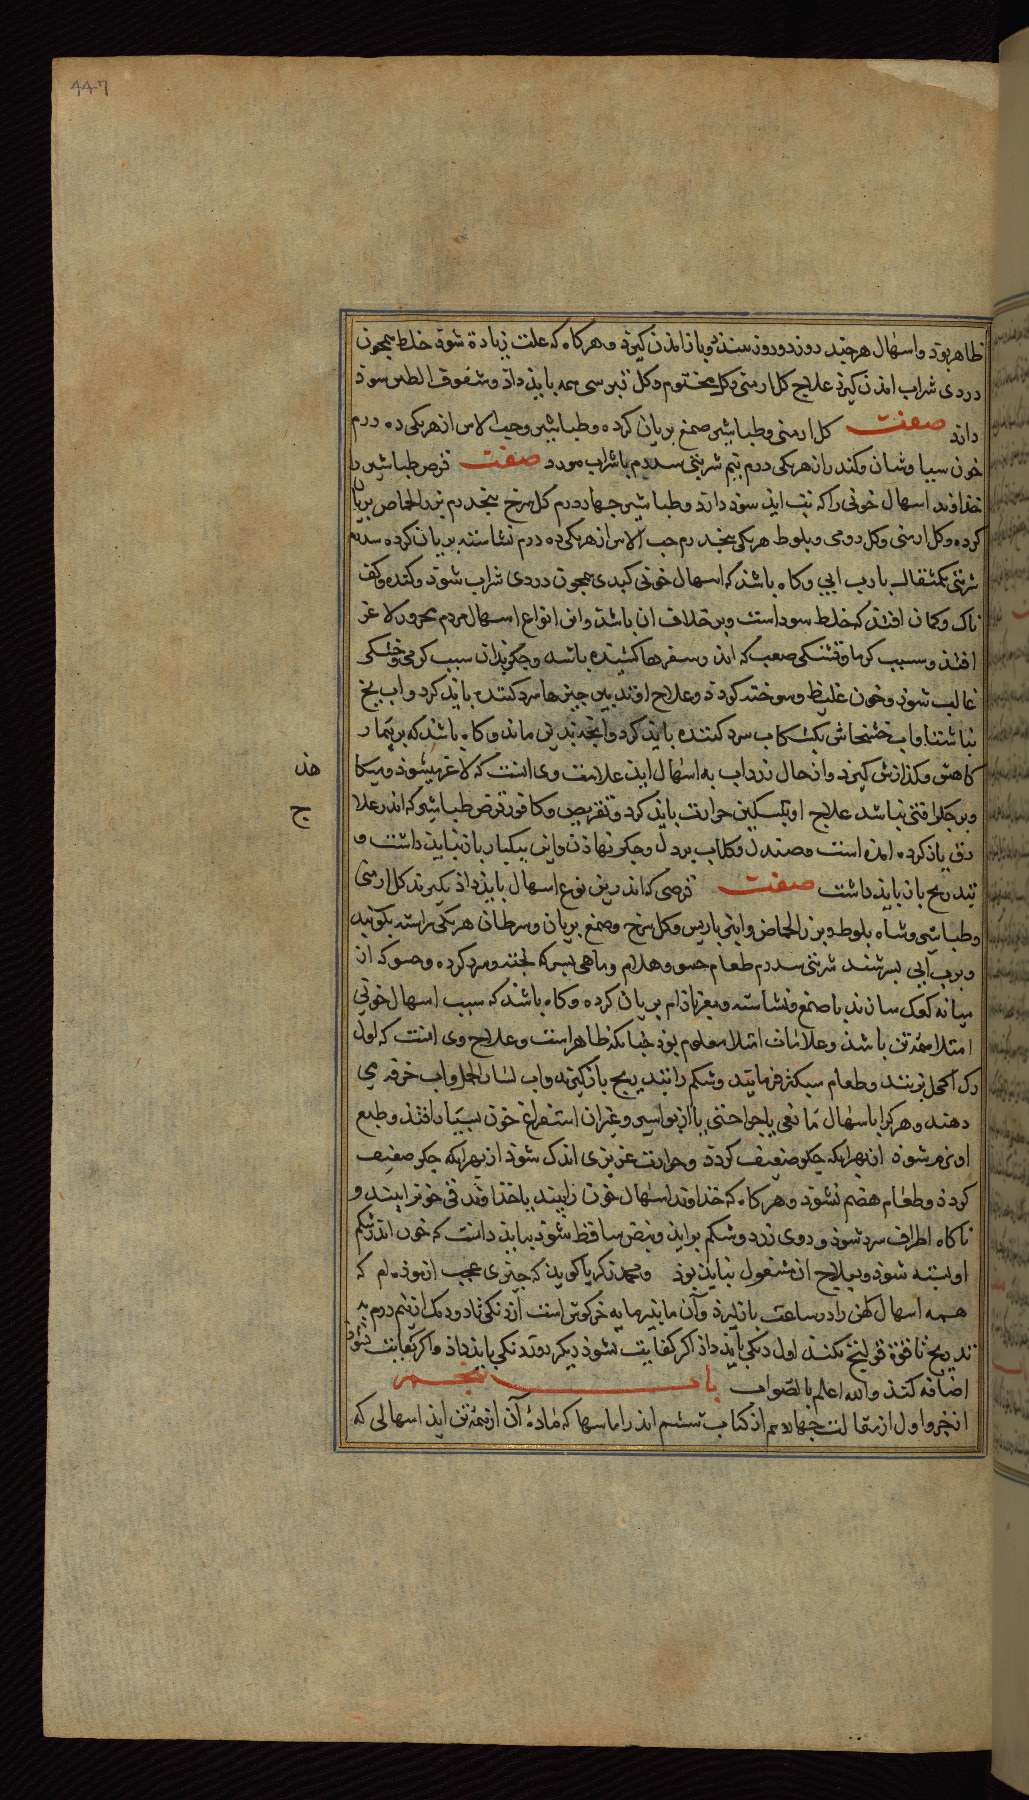 447
ظاهر بوذ و اسهال هر چند روز دو روز ببندد و باز آمدن کیرد و هر کاه که علت زیادة شوذ خلط همجون
دردی شراب امذن کیرذ علاج کل ارمنی و کل مختوم و کل قبرسی همه بایذ داذ و سفوف الطین سوذ
دارد صفت کل ارمنی و طباشیر صمغ بریان کرده و طباشیر و حب الاس از هر یکی ده درم
خون سیاوشان و کندر از هر یکی درم نیم شربتی سه درم با شراب مورد صفت قرص طباشیر
خذاوند اسهال خونی را که تب ایذ سوذ دارد و طباشیر جهار درم کل سرخ پنجدرم بزر الحماض بریان
کرده و کل ارمنی و کل رومی و بلوط هر یکی پنجدرم حب الاس از هر یکی ده درم نشاسته بریان کرده سه درم
شربتی یکمثقال با رب ابی و کاه باشذ که اسهال خونی کبدی همجون دردی شراب شوذ و کنده و کف
ناک و کمان افتذ که خلط سوداست و بر خلاف ان باشذ و این انواع اسهال مردم محرور لاغر
افتذ و سبب کرما و تشنکی صعب که اندر سفرها کشیده باشد و جکر بذان سبب کرمی و خشکی
غالب شوذ و خون غلیظ و سوخته کردد و علاج او تدبیر جیزها سرد کننده بایذ کرد و اب یخ
نباشتا و اب خشخاش بکشکاب سرد کننده بایذ کرد و انجه بدین ماند و کاه باشذ که بیمار
کاهش و کذازش کیرذ و از حال زرداب به اسهال ایذ علامت وی انست که لاغر میشوذ و
و بر جکر افتی نباشذ علاج او بتسکین حرارت بایذ کرد و بقرص و کافور و قرص طباشیر که اندر علا
هذ
ج
دق یاذ کرده امذه است و صندل و کلاب بر دل و جکر نهاذن و این بیکبار باز نبایذ داشت و
بتدریج باز بایذ داشت صفت قرصی که اندرین نوع اسهال بایذ داذ بکیرند کل ارمنی
و طباشیر و شاه بلوط و بزر الحماض و انبرباریس و کل سرخ و صمغ بریان و سرطان هر یکی راسته بکوبند
و برب ابی بسرشند شربتی سه درم طعام حسو و هلام و ماهی بسرکه بخته و سرد کرده و حسو که از
میانه کعک سازند با صمغ و نشاسته و مغز باذام بریان کرده و کاه باشذ که سبب اسهال خونی
امتلا همه تن باشذ و علامات امتلا معلوم بوذ جنانکه ظاهر است و علاج وی انست که اول
رک اکحل بزنند و طعام سبکتر فرمایند و شکم را بتدریج باز کیرند و اب لسان الحمل و اب خرفه می
دهند و هر کرا باسهال مانعی یا جراحتی یا از بواسیر و غیر ان استفراغ خون بسیار افتذ و طبع
او نرم شوذ از بهر انکه جکر ضعیف کردذ و حرارت غریزی اندک شوذ از بهر انکه جکر ضعیف
کردذ و طعام هضم نشوذ و هر کاه که خذاوند اسهال خون زایند یا خذاوند قی خونرا ببیند و
ناکاه اطراف سرد شوذ و روی زرد و شکم برایذ و نبض ساقط شوذ ببایذ دانست که خون اندر شکم
او بسته شوذ و بعلاج ان مشغول ببایذ بوذ و محمد زکریا کویذ که جیزی عجب ازموذه ام که
همه اسهال کهن را در ساعت باز کیرذ و آن ماینیر مایه خرکوش است از دنکی تا دو دنک از نیم درم بد
بتدریج تا قوة قولنج نکند اول دنکی بایذ داذ اکر کفایت نشوذ دیکر روز دنکی بایذ داذ و اکر کفایت نشوذ
اضافه کنذ والله اعلم بالصواب باب پنجم
از جزو اول از مقالت جهاردهم از کتاب ششم اندر اماسها که مادهٔ آن از همه تن ایذ اسهالی که